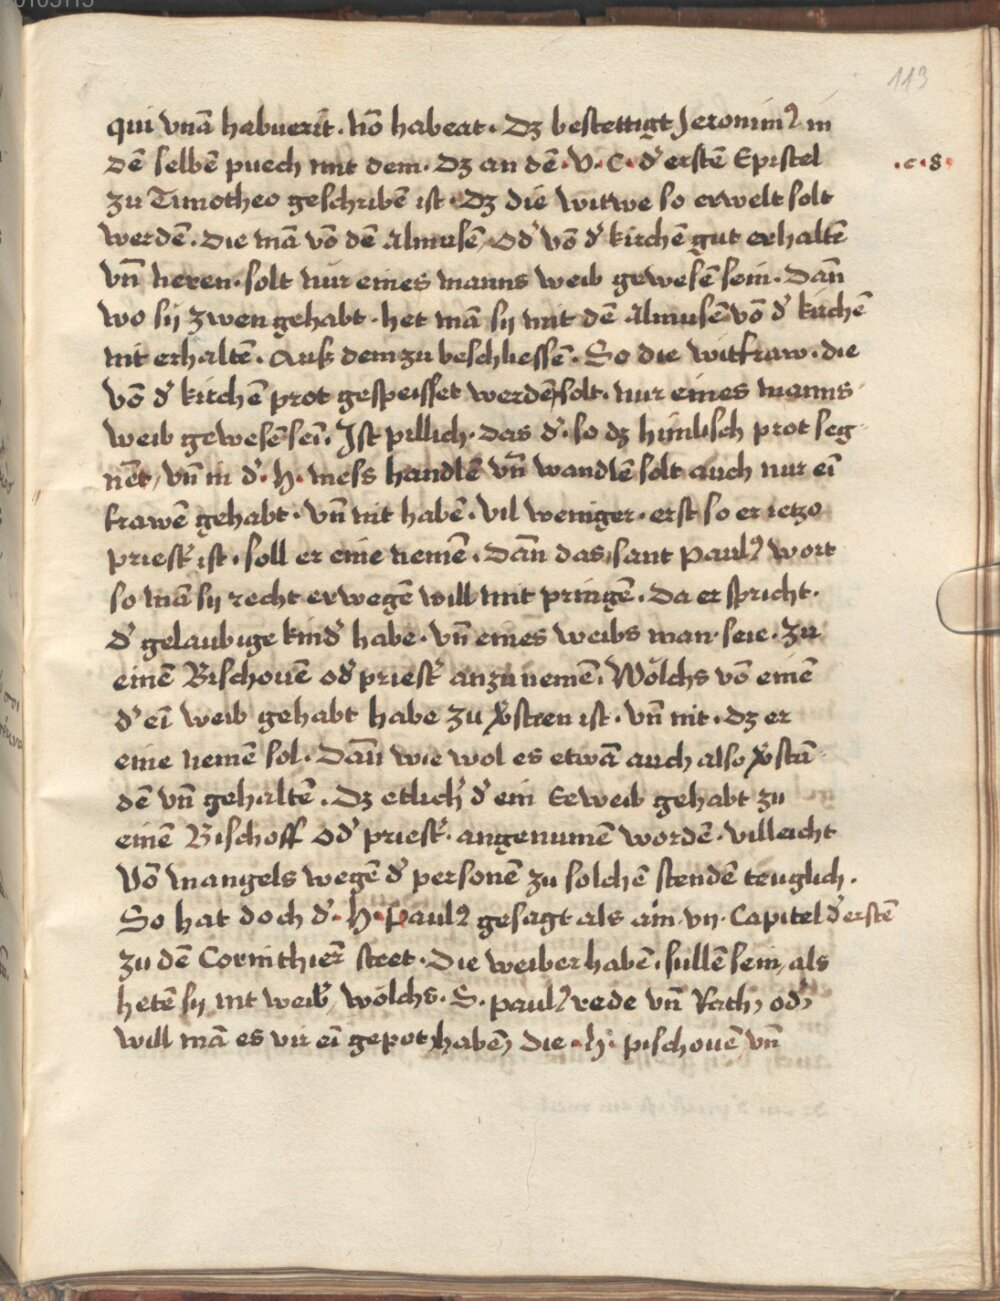 113
qui vnā habuerit · nō habeat · Dz bestettigt Jeronimꝰ in
dē selbē puech mit dem · Dz an dē · V · C · d' erstē Epistel
· c · 8 ·
zu Timotheo geschribē ist · Dz die witwe so erwelt solt
werdē · die mā vō dē Almusē / od' vō d' kirchē gut erhaltē
vn̄ neren · solt nur eines manns weib gewesē sein · Dan̄
wo sij zwen gehabt · het mā sij mit dē Almusē vō d' kirchē
nit erhaltē · Auß dem zu beschliessē · So die witfraw · die
vō d' kirchē prot gespeisset werdē solt · nur eines manns
weib gewesē sei · Ist pillich · das d' · so dz himlisch prot seg-
nēt / vn̄ in d' · H · mess handlē vn̄ wandlē solt auch nur eī
frawē gehabt · vn̄ nit habē · vil weniger · erst so er ietzo
priest' ist · soll er eine nemē · Dan̄ das / sant Paulꝰ wort
so mā sij recht erwegē will mit pringē · Da er spricht ·
d' gelaubige kind' habe · vn̄ eines weibs man · seie · zu
einē Bischouē od' priest' anzunemē · Wölchs vō einē
d' eī weib gehabt habe zu v'steen ist · vn̄ nit · dz er
eine nemē sol · Dan̄ wie wol es etwā auch also v'stā-
dē vn̄ gehaltē · Dz etlich' d' ein Eeweib gehabt zu
einē Bischoff od' priest' · angenumē wordē · villeicht
vō mangels wegē d' personē zu solchē stendē teuglich ·
So hat doch d' · H · Paulꝰ gesagt als am · vij · Capitel d' erstē
zu dē Corinthier' steet · Die weiber habē · sullē sein / als
hetē sij nit weib' / wölchs · S · paulꝰ rede vn̄ Rath / od'
will mā es vir eī gepot habē / die · H · pischouē vn̄